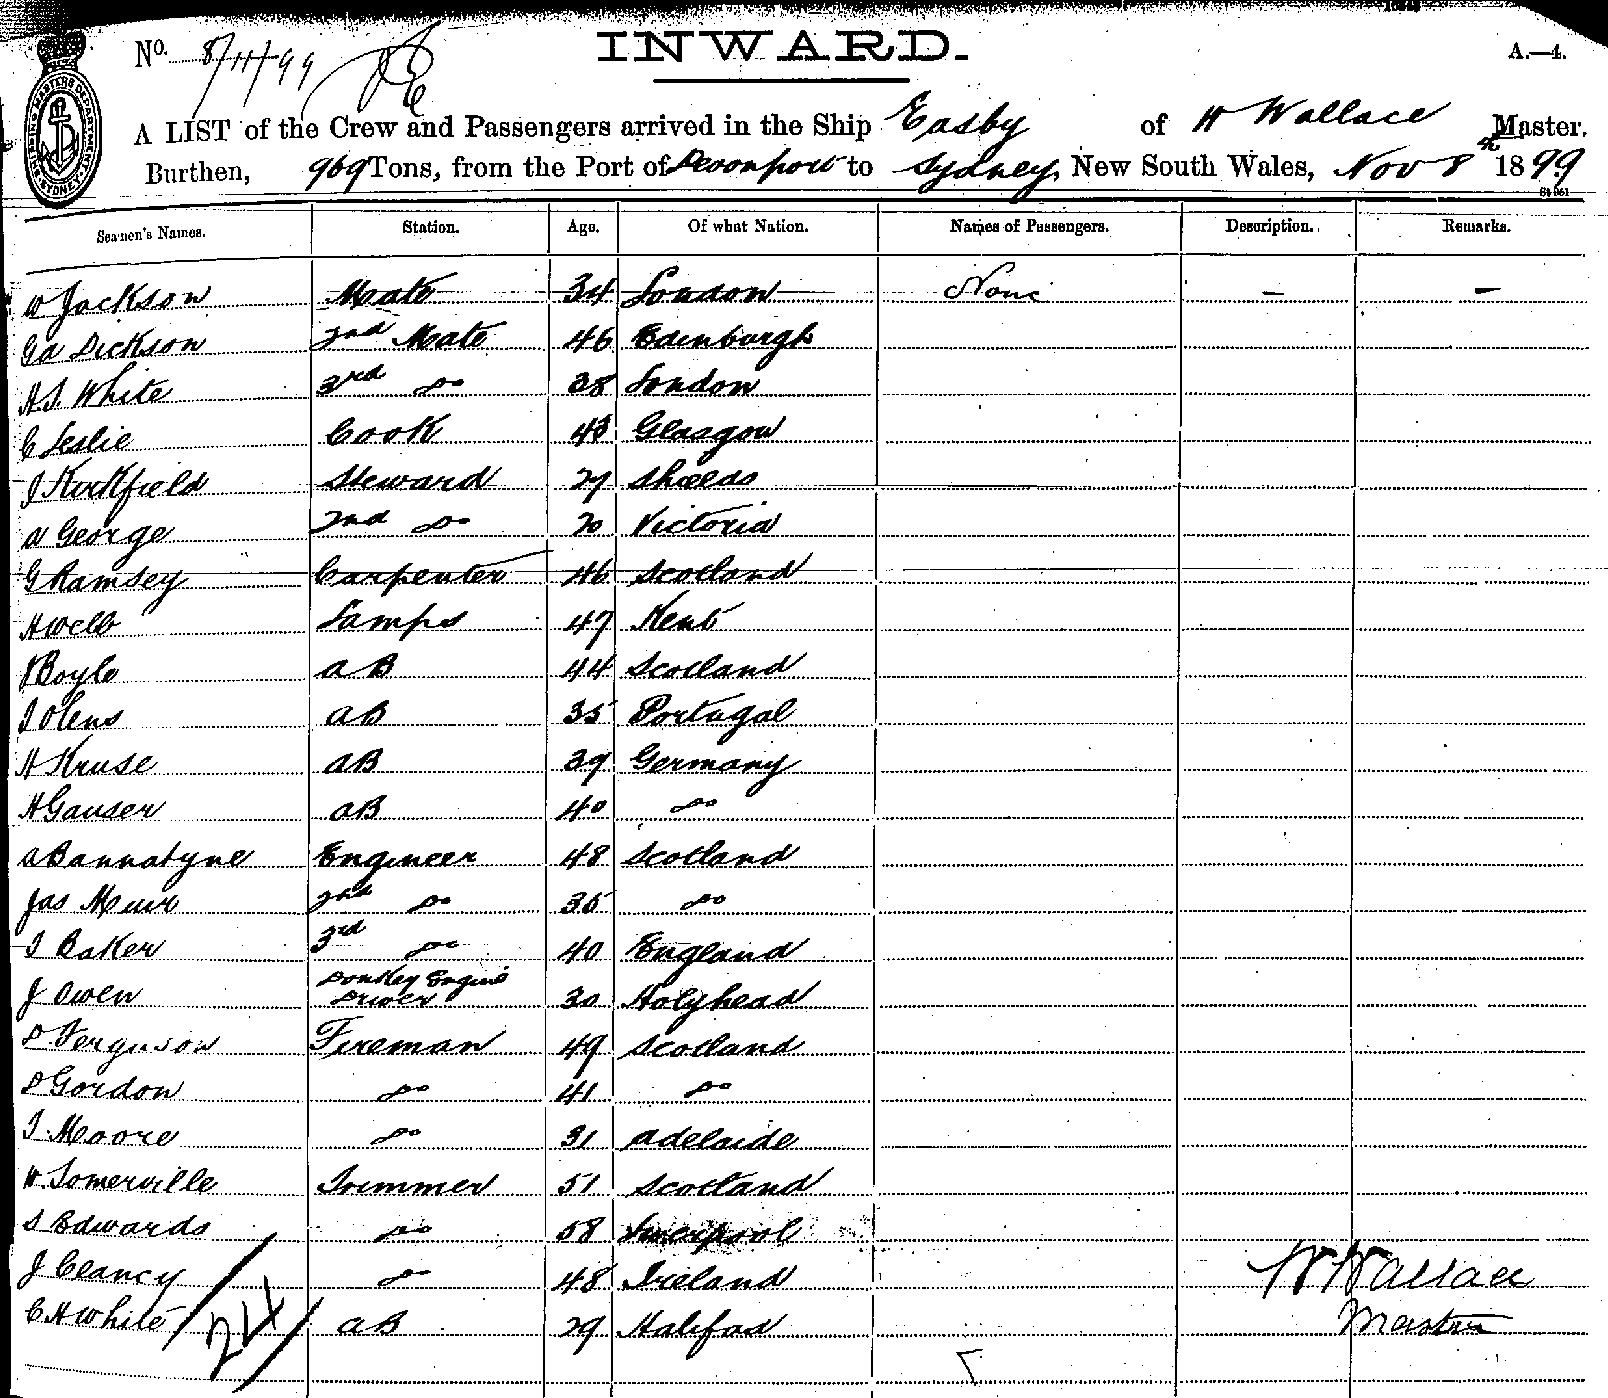 No. 8/11/99
INWARD.
A.—4.
A LIST of the Crew and Passengers arrived in the Ship Easby of W Wallace Master.
Burthen, 969 Tons, from the Port of Devonport to Sydney, New South Wales, Nov 8th 1899
Seamen's Names. Station. Age. Of what Nation. Names of Passengers. Description. Remarks.
W Jackson Mate 34 London None — —
Gd Dickson 2nd Mate 46 Edinburgh
H.S. White 3rd Do 38 London
C Leslie Cook 43 Glasgow
J Kirkfield Steward 27 Shields
A George 2nd Do 20 Victoria
G Ramsey Carpenter 46 Scotland
H Webb Lamps 47 Kent
J Boyle AB 44 Scotland
J Olens AB 35 Portugal
H Kruse AB 39 Germany
H Gauser AB 40 Do
A Bannatyne Engineer 48 Scotland
Jas Muir 2nd Do 35 Do
T Baker 3rd Do 40 England
J Owen Donkey Engine Driver 30 Holyhead
D Ferguson Fireman 49 Scotland
D Gordon Do 41 Do
T Moore Do 31 Adelaide
W Somerville Trimmer 51 Scotland
S Edwards Do 58 Liverpool
J Clancy Do 48 Ireland
C H White AB 29 Halifax
24
W Wallace
Master